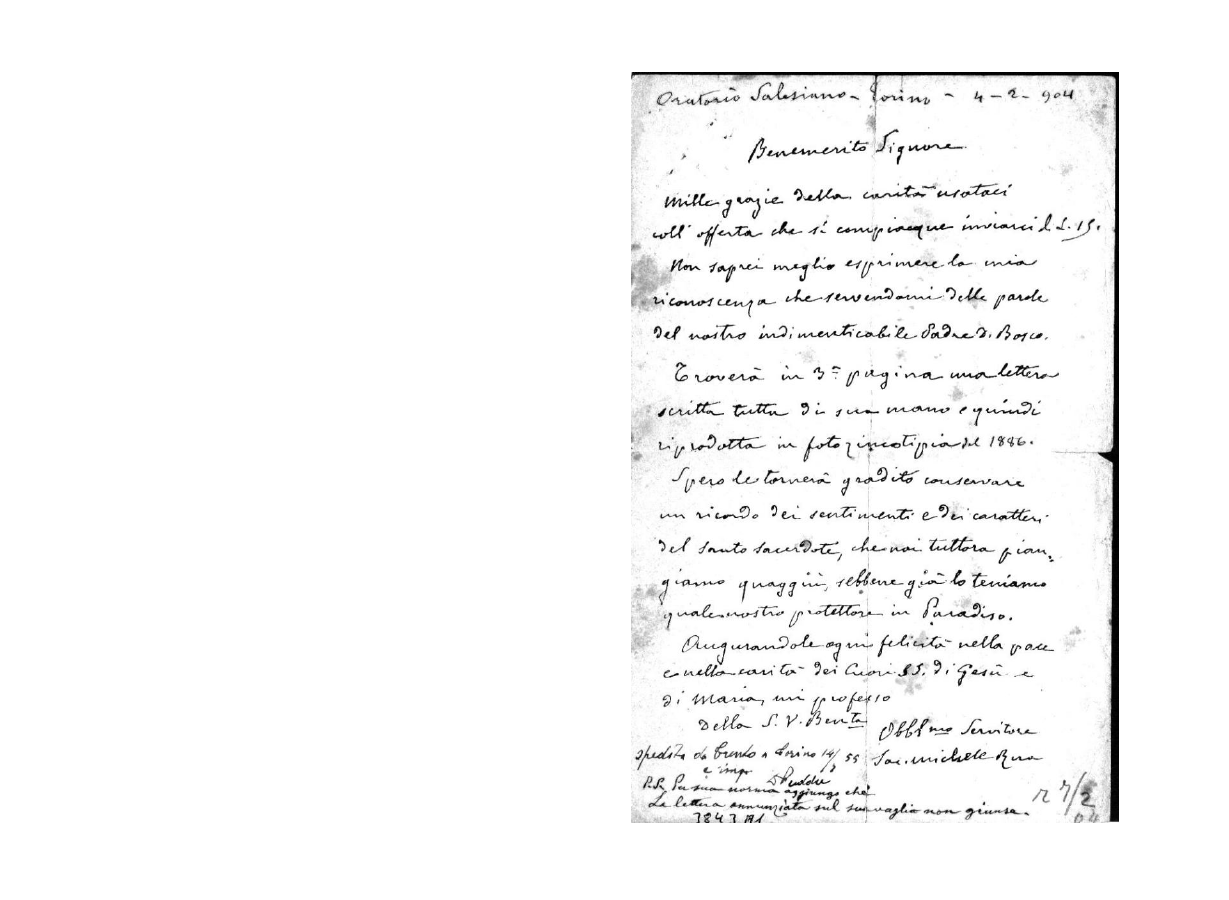 Oratorio Salesiano - Torino - 4 - 2 - 904
Benemerito Signore
Mille grazie della carità usataci
coll' offerta che si compiacque inviarci di L. 15.
Non saprei meglio esprimere la mia
riconoscenza che servendomi delle parole
del nostro indimenticabile Padre D. Bosco.
Troverà in 3ª pagina una lettera
scritta tutta di sua mano e quindi
riprodotta in fotozincotipia del 1886.
Spero le tornerà gradito conservare
un ricordo dei sentimenti e dei caratteri
del santo sacerdote, che noi tuttora pian-
giamo quaggiù, sebbene già lo teniamo
quale nostro protettore in Paradiso.
Augurandole ogni felicità nella pace
e nella carità dei Cuori SS. di Gesù e
di Maria, mi professo
della S. V. Benta
Obblmo Servitore
Sac. Michele Rua
spedita da Trento a Torino 14/ 55
P.S. Per sua norma aggiungo che
La lettera annunziata sul suo vaglia non giunse.
3843 A1